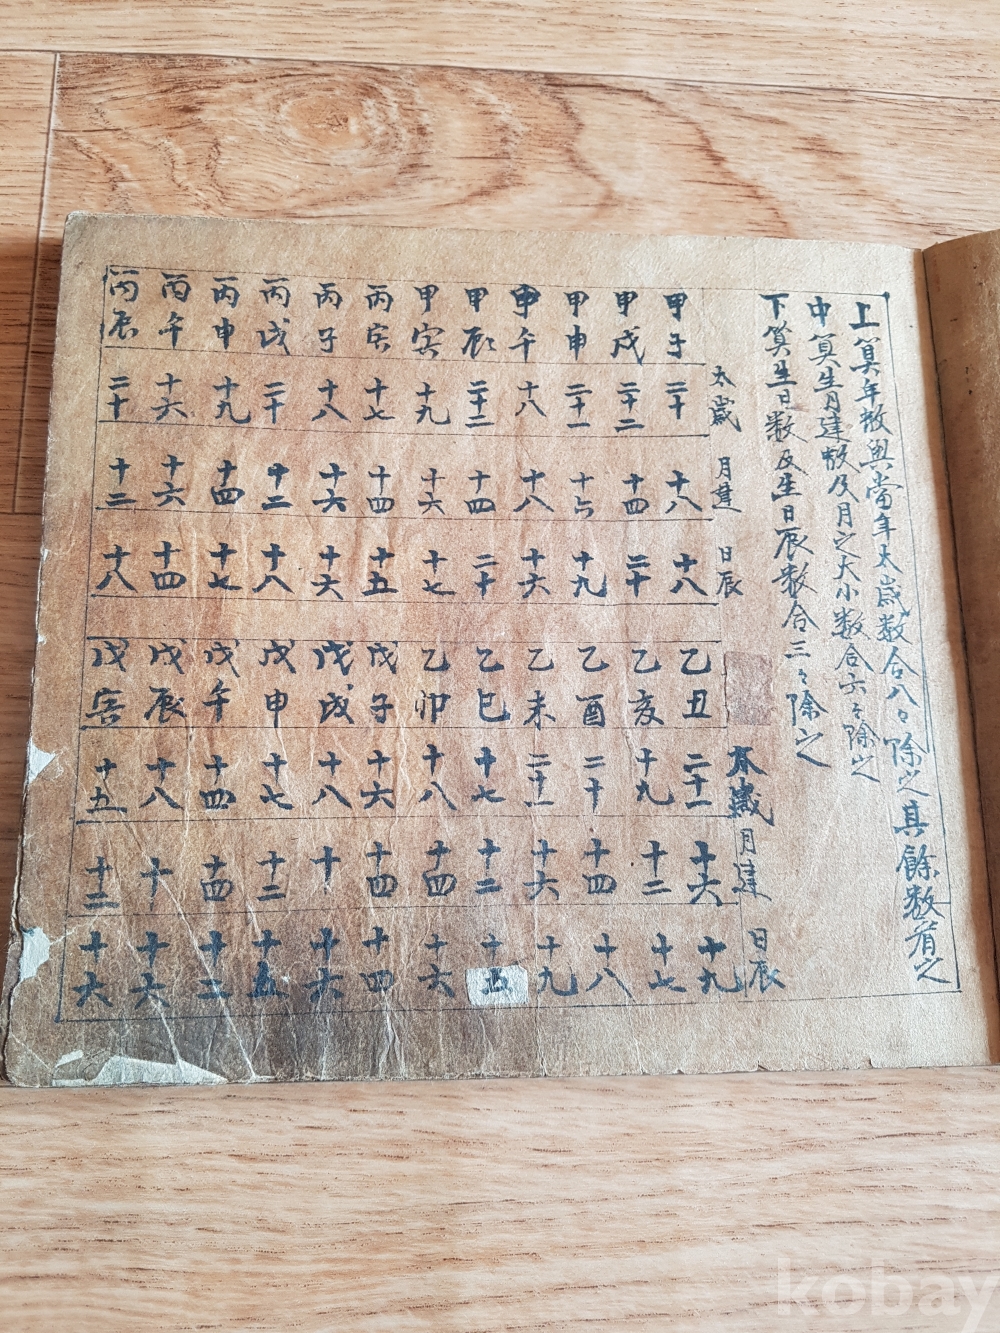 上算年数與當年太歲数合八々除之其餘数看之
中算生月建数及月之大小数合六々除之
下算生日数及生日辰数合三々除之
太歲 月建 日辰 太歲 月建 日辰
甲子 二十 十八 十八 乙丑 二十一 十六 十九
甲戌 二十二 十四 二十 乙亥 十九 十二 十七
甲申 二十一 十六 十九 乙酉 二十 十四 十八
甲午 十八 十八 十六 乙未 二十一 十六 十九
甲辰 二十二 十四 二十 乙巳 十七 十二 十五
甲寅 十九 十六 十七 乙卯 十八 十四 十六
丙寅 十七 十四 十五 戊子 十六 十四 十四
丙子 十八 十六 十六 戊戌 十八 十 十六
丙戌 二十 十二 十八 戊申 十七 十二 十五
丙申 十九 十四 十七 戊午 十四 十四 十二
丙午 十六 十六 十四 戊辰 十八 十 十六
丙辰 二十 十二 十八 戊寅 十五 十二 十六
kobay